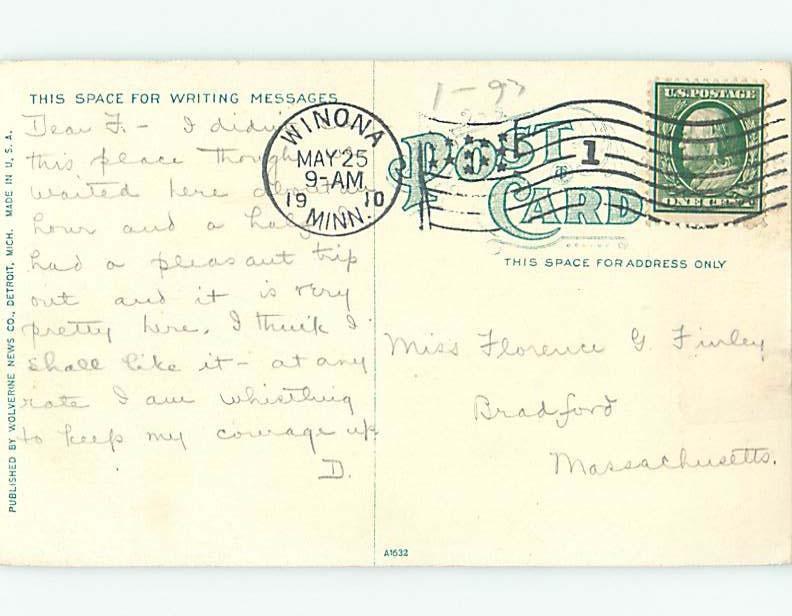 THIS SPACE FOR WRITING MESSAGES
Dear F. - I didn't
this place though
waited here about an
hour and a half
had a pleasant trip
out and it is very
pretty here. I think I
shall like it - at any
rate I am whistling
to keep my courage up.
D.
PUBLISHED BY WOLVERINE NEWS CO., DETROIT, MICH. MADE IN U. S. A.
WINONA
MAY 25
9-AM
1910
MINN.
1-9
POST
CARD
1
U.S. POSTAGE
ONE CENT
THIS SPACE FOR ADDRESS ONLY
Miss Florence G. Finley
Bradford
Massachusetts.
A1632